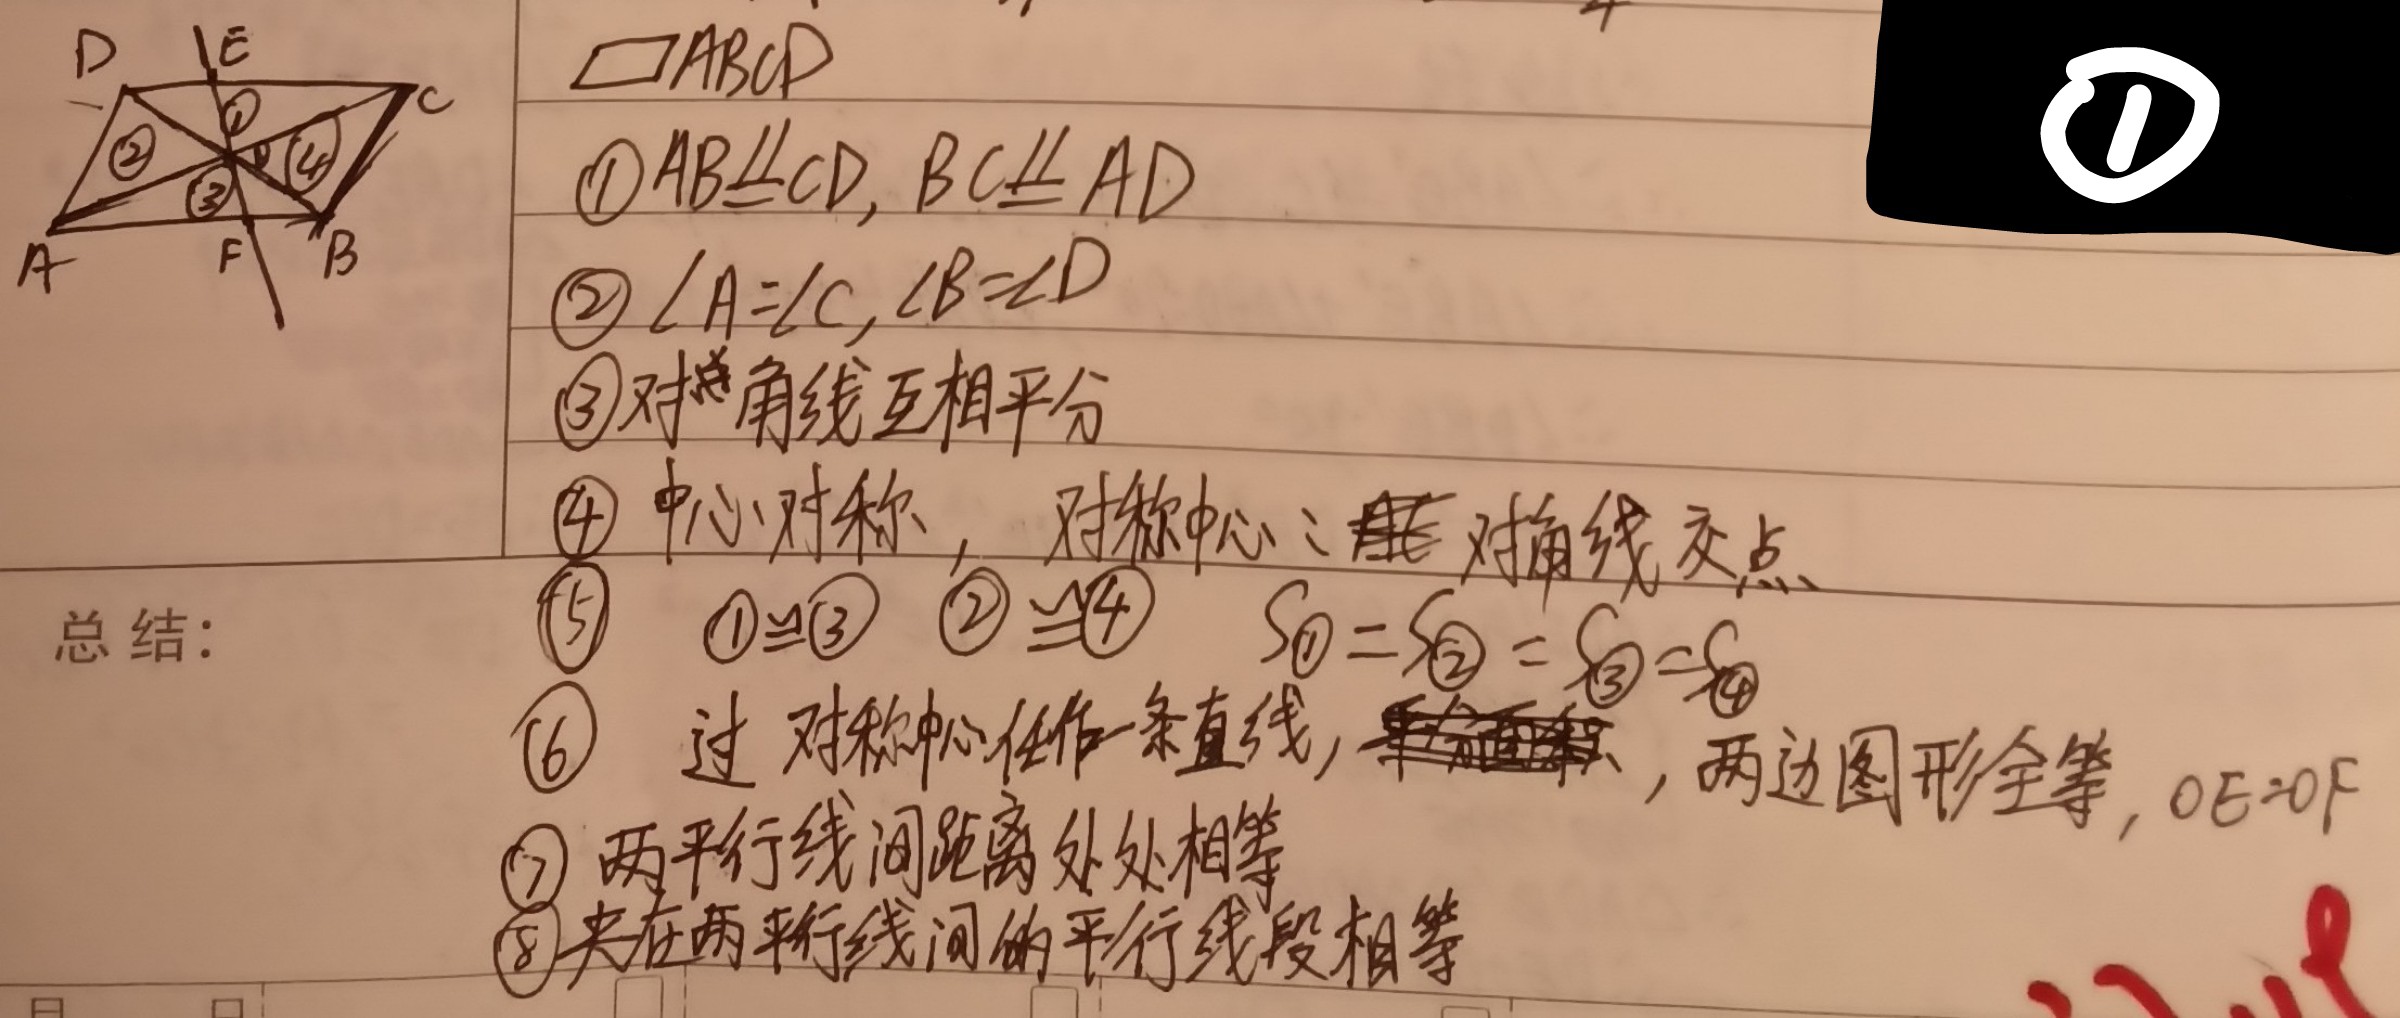 D E
C
① ② ③ ④
A F B
▱ABCD
①
①AB∥=CD, BC∥=AD
②∠A=∠C,∠B=∠D
③对角线互相平分
④ 中心对称, 对称中心: 对角线交点
总结:
⑤ ①≌③ ②≌④ S①=S②=S③=S④
⑥ 过对称中心任作一条直线, , 两边图形全等, OE=OF
⑦ 两平行线间距离处处相等
⑧夹在两平行线间的平行线段相等